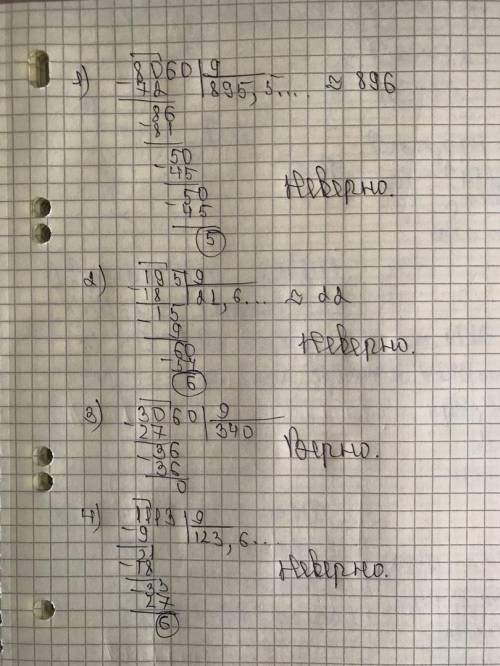 1) 8060 | 9
- 72 | 895,5... ≈ 896
86
- 81
50
- 45
Неверно.
50
- 45
5
2) 195 | 9
- 18 | 21,6... ≈ 22
15
- 9
Неверно.
60
- 54
6
3) 3060 | 9
- 27 | 340
36
Верно.
- 36
0
4) 1113 | 9
- 9 | 123,6...
21
- 18
Неверно.
33
- 27
6